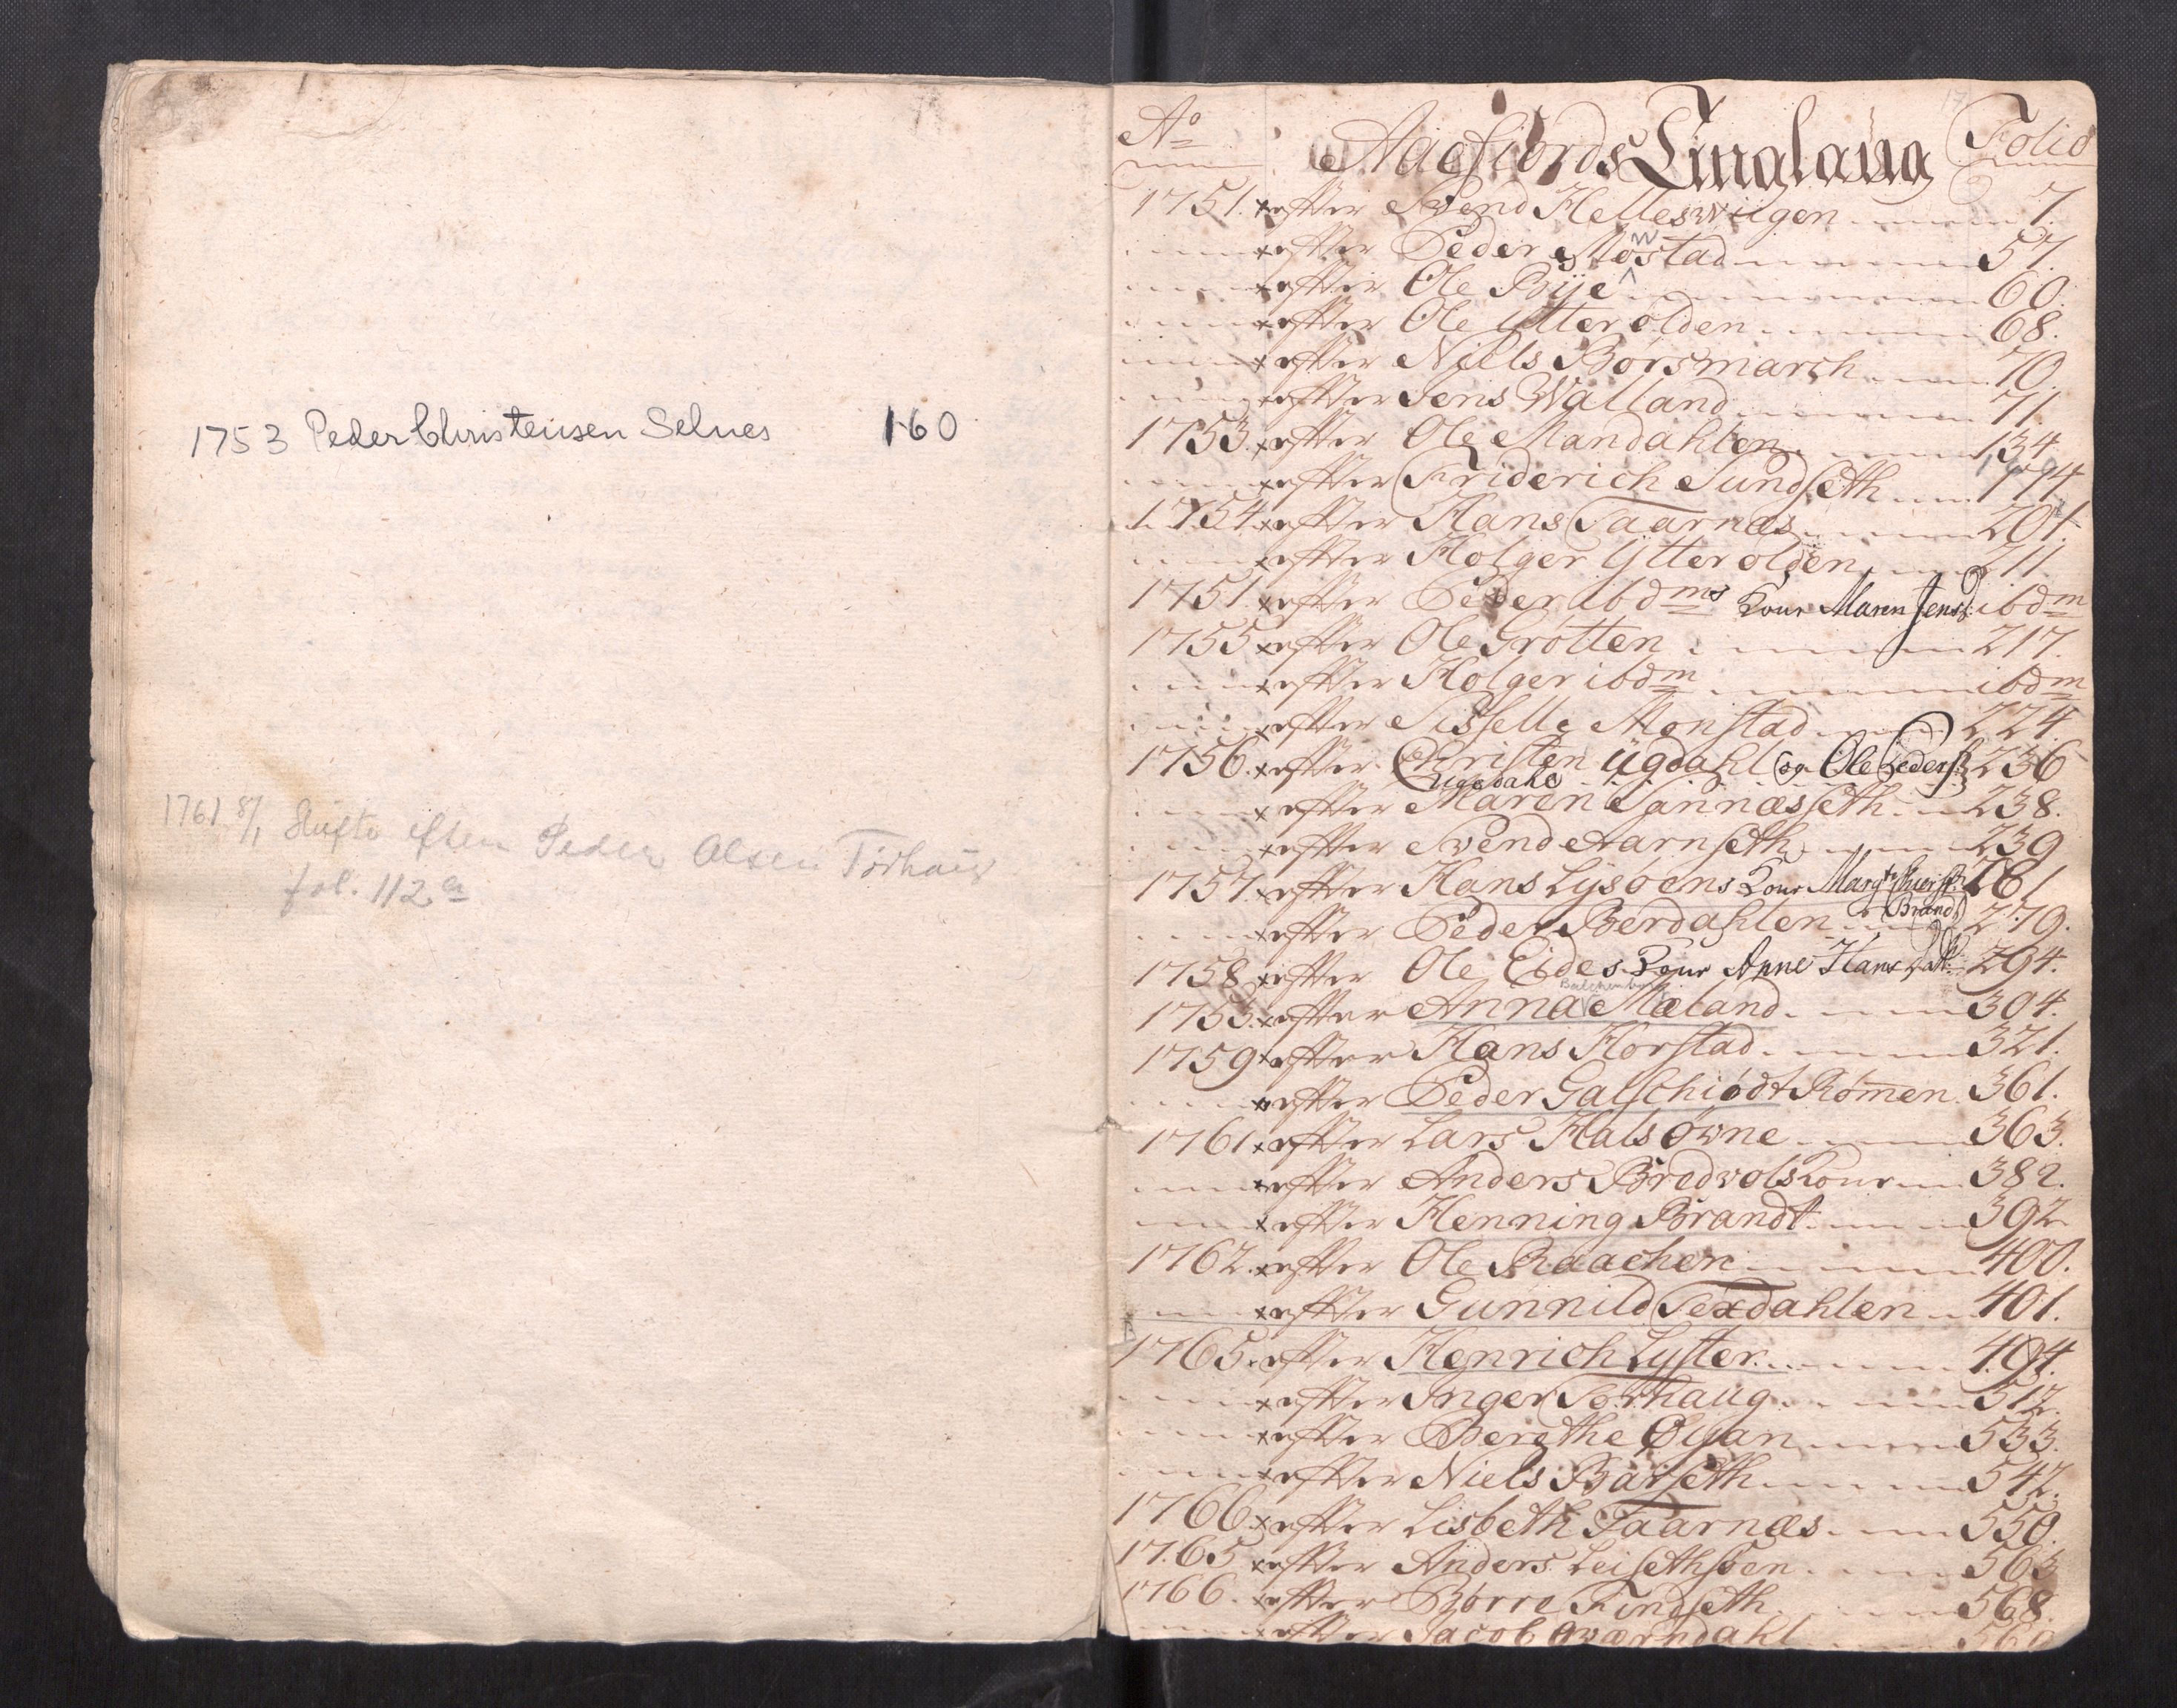 1753 Peder Christensen Selnes 160
1761 8/1 Skifte efter Peder Olsen Tørhaug
fol. 112 a
Ao Aaefiords Tinglaug Folio
1751. efter Svend Helleswiigen 7.
efter Peder Mønstad 57.
efter Ole Bÿe 60.
efter Ole Ytterolden 68.
efter Niels Borsmarch 70.
efter Jens Walland 71.
1753. efter Ole Mandahlen 134.
efter Friderich Sundseth 194
1754. efter Hans Taarnæs 201.
efter Holger Ytterolden 211
1751. efter Peder ibdms Koue Maren Jensd. ibdm
1755 efter Ole Grøtten 217.
efter Holger ibdm ibdm
efter Sisselle Monstad 224.
1756. efter Christen Ugdahl og Ole Peders. 236
Ugedahl
efter Maren Sannæsseth 238.
efter Svend Aarnseth 239
1757. efter Hans Lysøens Koue Margte 261
Brandt
efter Peder Berdahlen 279.
1758 efter Ole Eides Koue Anne Hansdatt. 294.
1755. efter Anna Mæland 304.
1759 efter Hans Horstad 321.
efter Peder Galschiødt Romen 361.
1761 efter Lars Halsøvne 363.
efter Anders Bredvols Koue 382.
efter Henning Brandt 392
1762. efter Ole Raachen 400.
efter Gunnild Sexdahlen 401.
1765. efter Henrich Lyster 494.
efter Inger Torhaug 512.
efter Berethe Øÿan 533.
efter Niels Barseth 542.
1766. efter Lisbeth Taarnæs 550.
1765 efter Anders Leisethsøen 563
1766. efter Børre Findseth 568.
efter Jacob Qværndahl 569